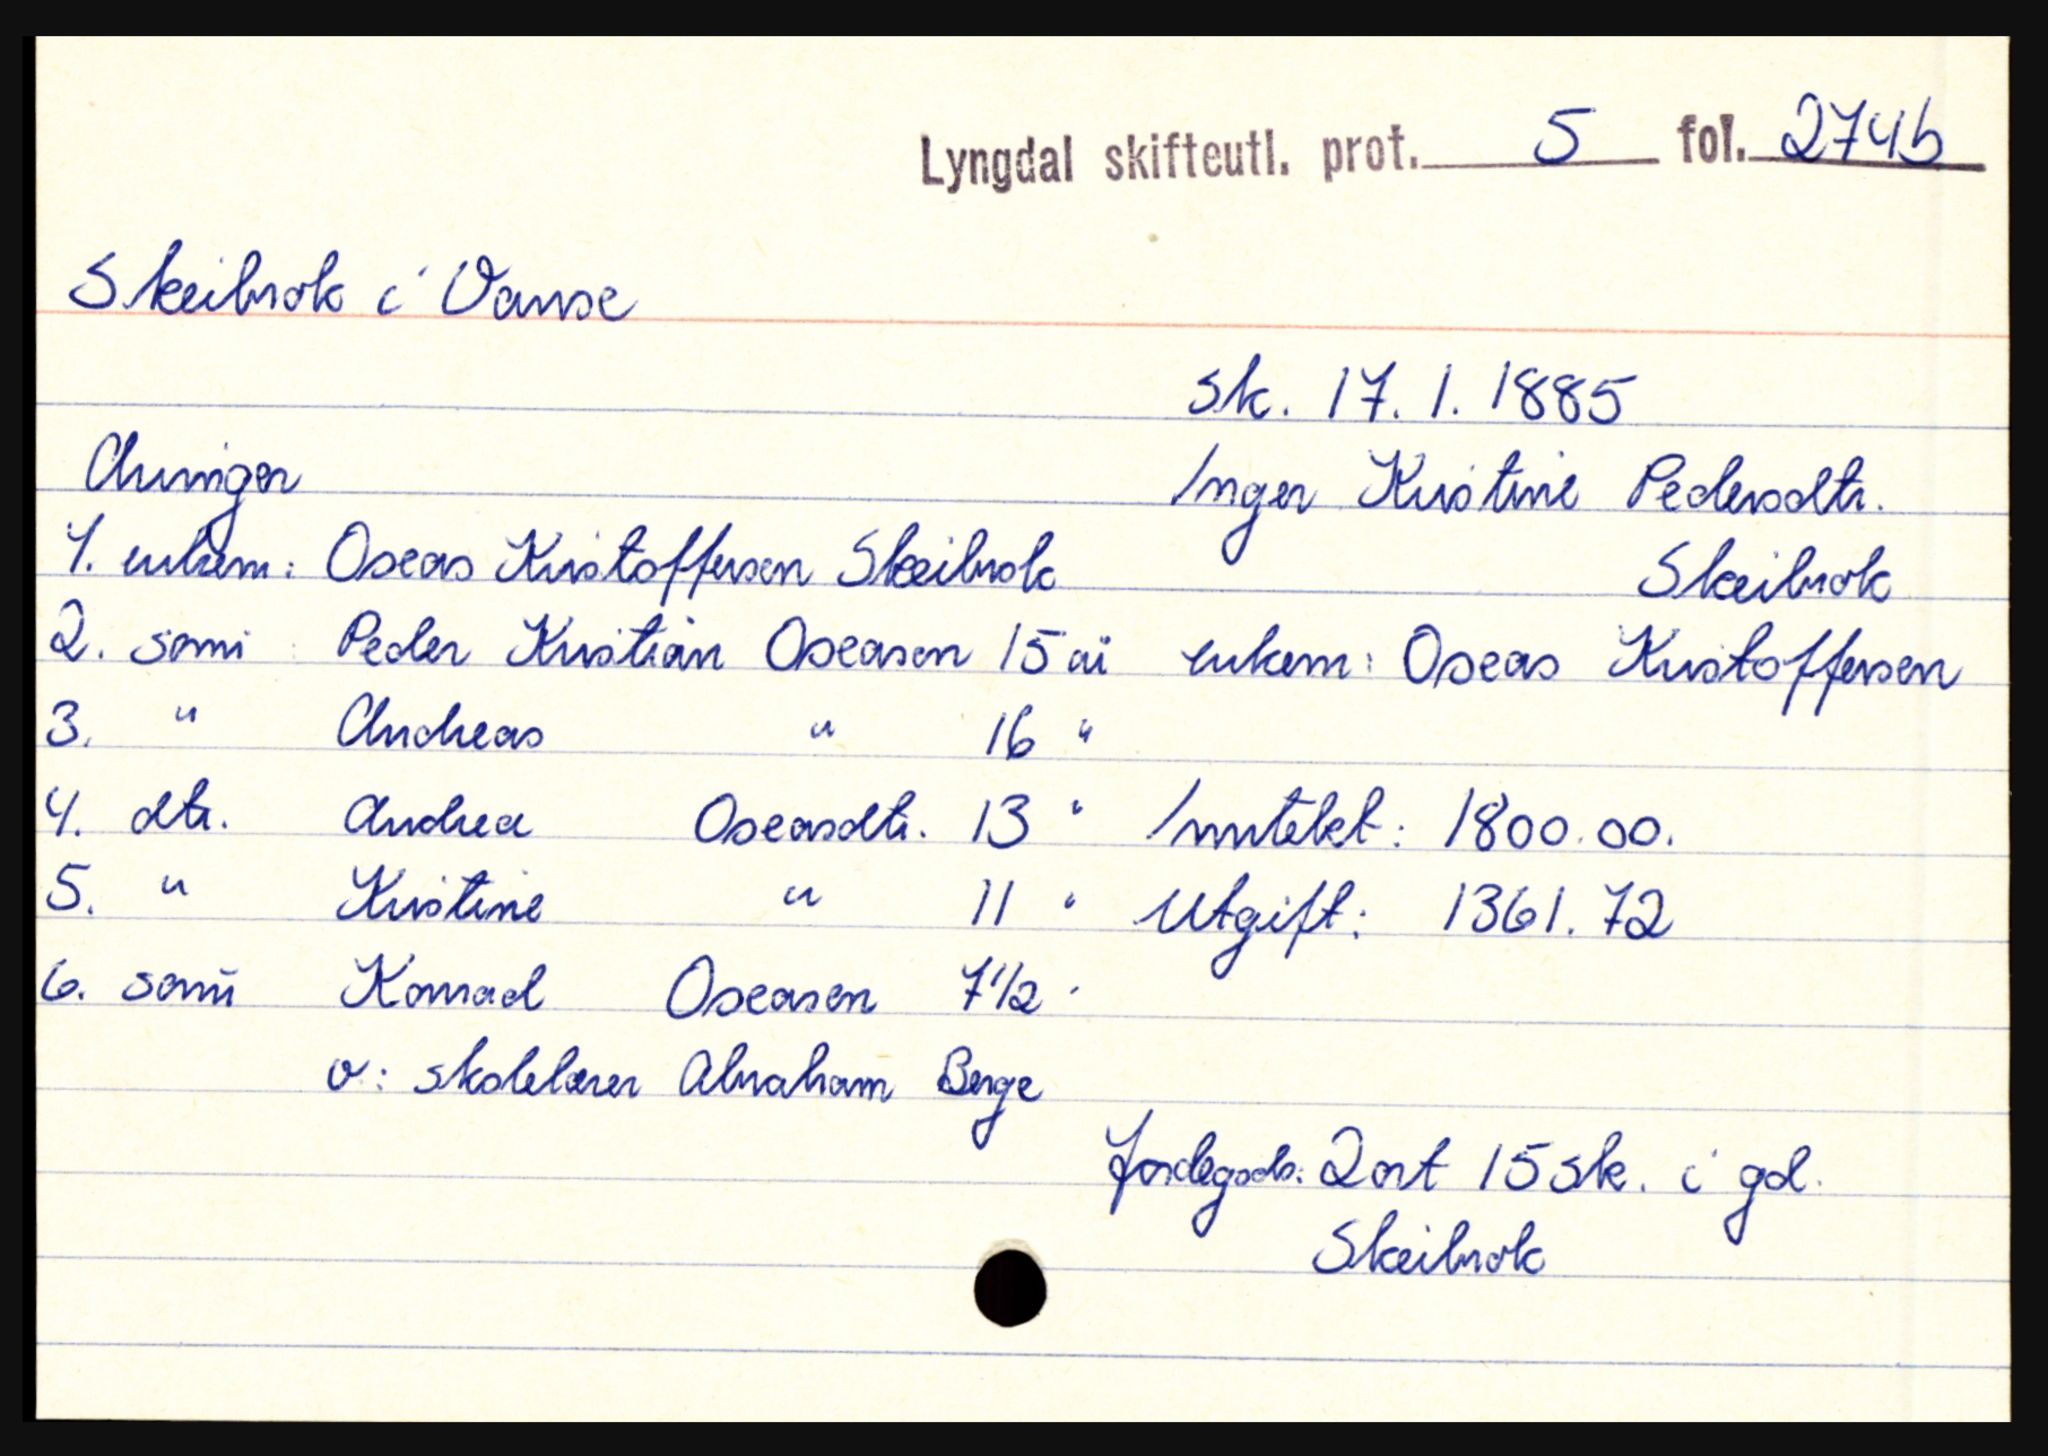 Lyngdal skifteutl. prot. 5 fol. 274b
Skeibrok i Vanse
sk. 17. 1. 1885
Arvinger
Inger Kristine Pedersdtr.
Skeibrok
1. enkem: Oseas Kristoffersen Skeibrok
enkem: Oseas Kristoffersen
2. sønn: Peder Kristian Oseasen 15 år
3. " Andreas " 16 "
4. dtr. Andrea Oseasdtr. 13 "
Inntekt: 1800.00.
5. " Kristine " 11 "
Utgift: 1361.72
6. sønn Konrad Oseasen 7 1/2 "
v: skolelærer Abraham Berge
Jordegods: 2 ort 15 sk. i gd.
Skeibrok